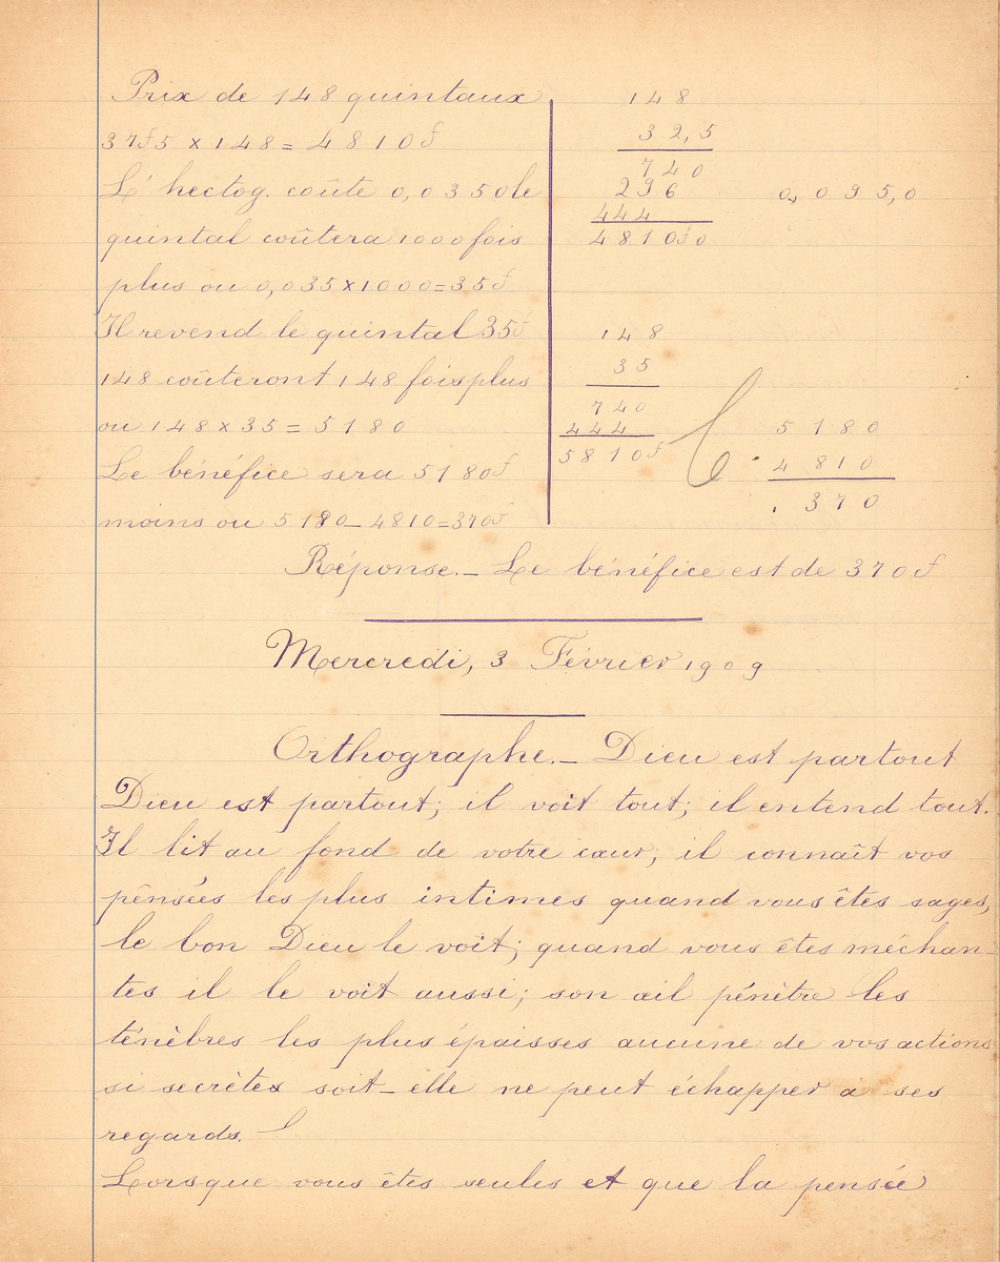 Prix de 148 quintaux
37f5 x 148 = 4810f
L'hectog. coûte 0,0350 le
quintal coûtera 1000 fois
plus ou 0,035 x 1000 = 35f
Il revend le quintal 35f
148 coûteront 148 fois plus
ou 148 x 35 = 5180
Le bénéfice sera 5180f
moins ou 5180 _ 4810 = 370f
148
32,5
740
296
444
4810f0
0,0 9 5,0
148
35
740
444
5810f
5180
4810
.370
Réponse._ Le bénéfice est de 370f
Mercredi, 3 Février 1909
Orthographe._ Dieu est partout
Dieu est partout; il voit tout; il entend tout.
Il lit au fond de votre cœur; il connaît vos
pensées les plus intimes quand vous êtes sages,
le bon Dieu le voit; quand vous êtes méchan_
tes il le voit aussi; son œil pénètre les
ténèbres les plus épaisses aucune de vos actions
si secrètes soit-elle ne peut échapper à ses
regards.
Lorsque vous êtes seules et que la pensée